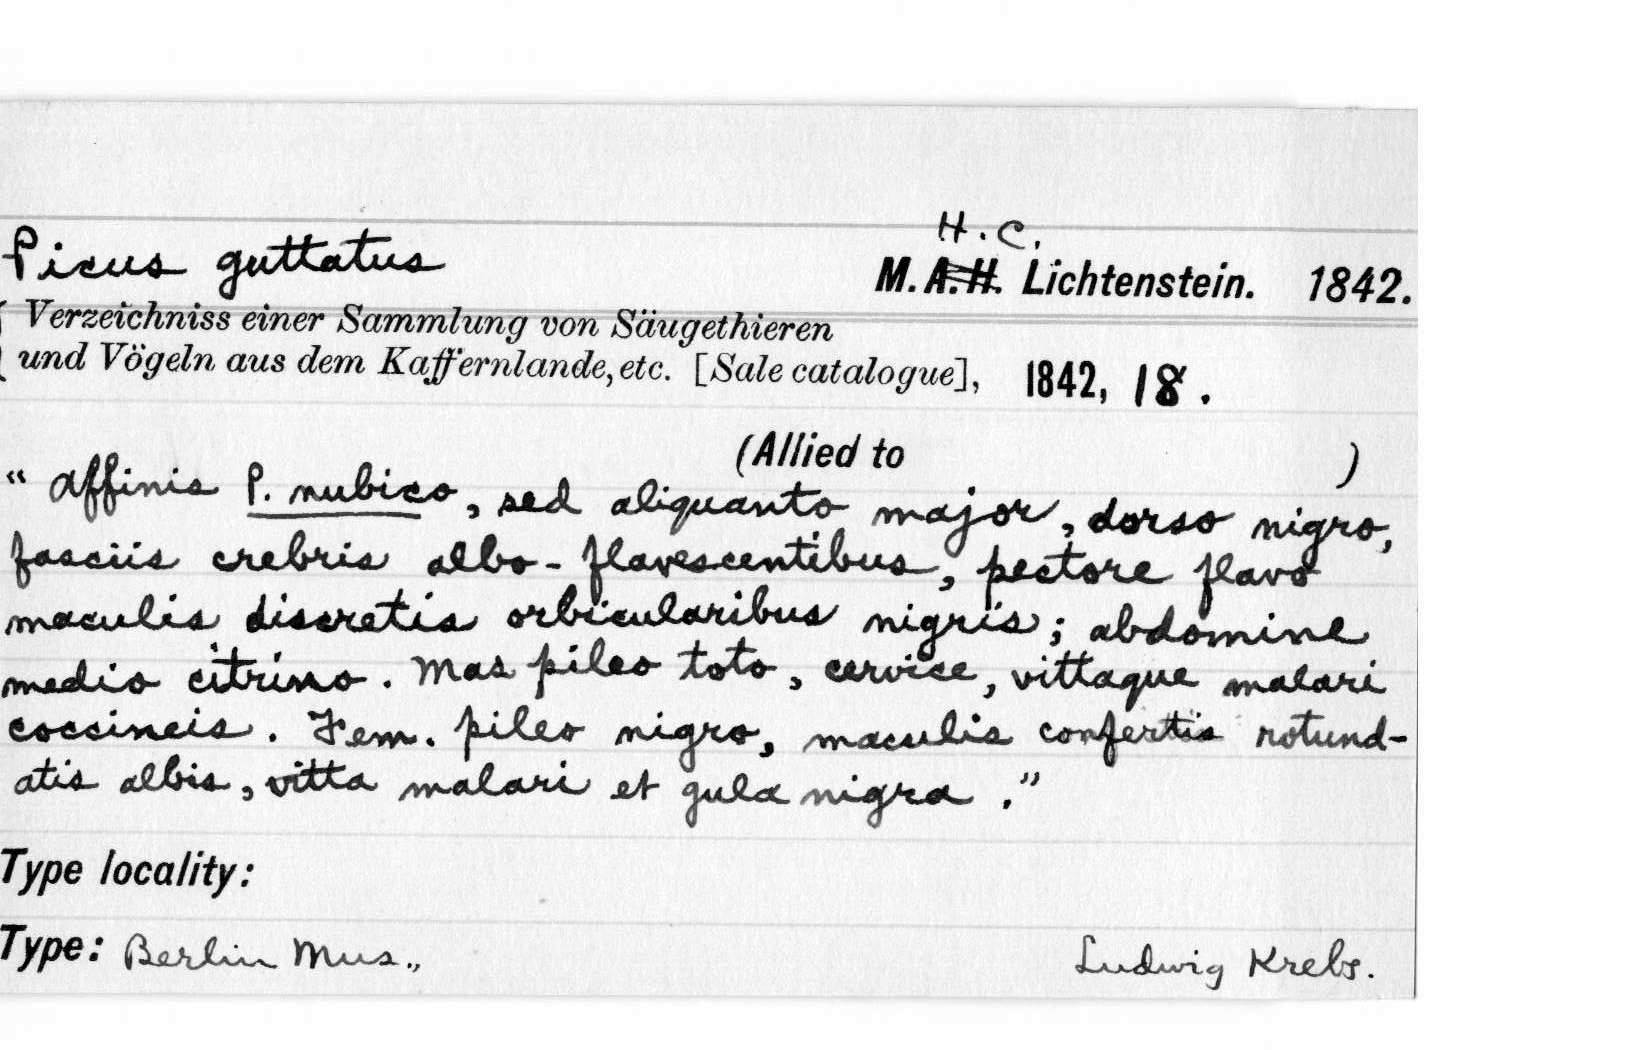 Picus guttatus
H. C.
M. A. H. Lichtenstein. 1842.
Verzeichniss einer Sammlung von Säugethieren
und Vögeln aus dem Kaffernlande, etc. [Sale catalogue], 1842, 18.
(Allied to )
" Affinis P. nubico, sed aliquanto major, dorso nigro,
fasciis crebris albo-flavescentibus, pectore flavo
maculis discretis orbicularibus nigris; abdomine
medio citrino. Mas pileo toto, cervice, vittaque malari
coccineis. Fem. pileo nigro, maculis confertis rotund-
atis albis, vitta malari et gula nigra."
Type locality:
Type: Berlin Mus., Ludwig Krebs.